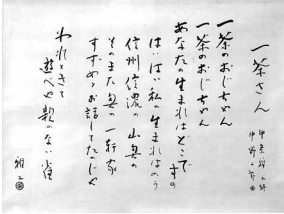 一茶さん
一茶のおじちゃん
一茶のおじちゃん
あなたの生まれはどこですの
はいはい私の生まれはのう
信州信濃の山奥の
そのまた奥の一軒家
すずめとお話してたのじゃ
われときて
遊べや親のない雀
雅三